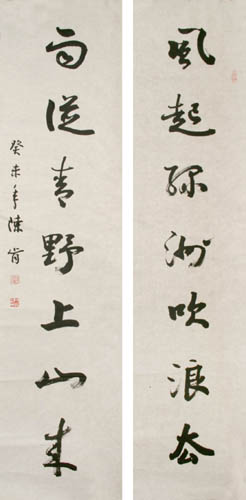 風起綠洲吹浪去
雨從青野上山來
癸未年陳肯